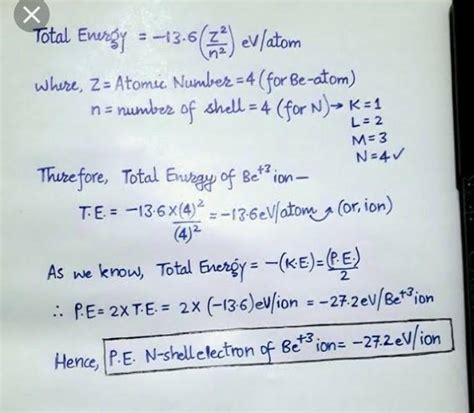 Total Energy = -13.6(Z²/n²) eV/atom
where, Z = Atomic Number = 4 (for Be-atom)
n = number of shell = 4 (for N) → K = 1
L = 2
M = 3
N = 4 ✓
Therefore, Total Energy of Be⁺³ ion —
T.E. = -13.6 × (4)² / (4)² = -13.6 eV/atom (or, ion)
As we know, Total Energy = -(K.E) = (P.E.)/2
∴ P.E = 2 × T.E. = 2 × (-13.6) eV/ion = -27.2 eV/Be⁺³ ion
Hence, P.E. N-shell electron of Be⁺³ ion = -27.2 eV/ion